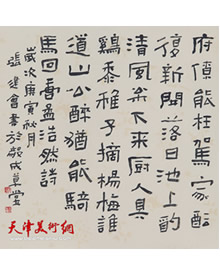 府僚能枉駕家醖
復新開落日池上酌
清風松下來厨人具
雞黍稚子摘楊梅誰
道山公醉猶能騎
馬回孟浩然詩
歲次庚寅秋月
張建會書於成草堂
天津美術網